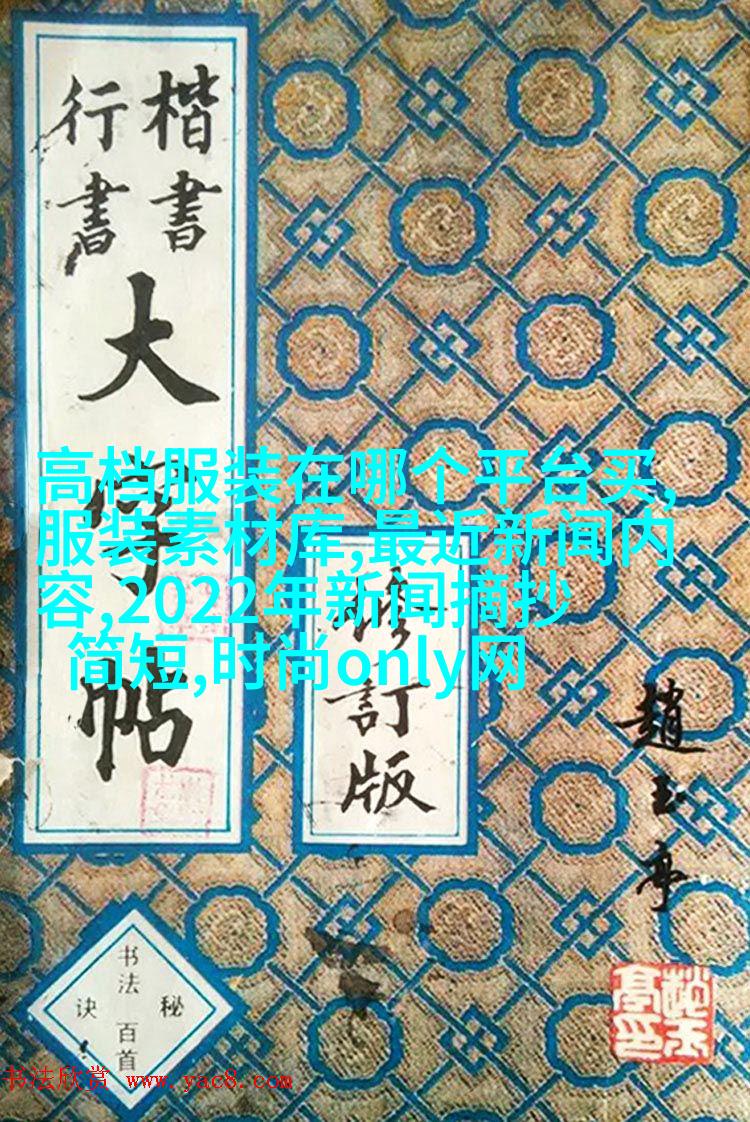 楷書
行書
大字帖
高档服装在哪个平台买,
服装素材库,最近新闻内
容,2022年新闻摘抄
简短,时尚only网
修訂版
趙玉亭
书法百首
秘诀
书法欣赏 www.yac8.com